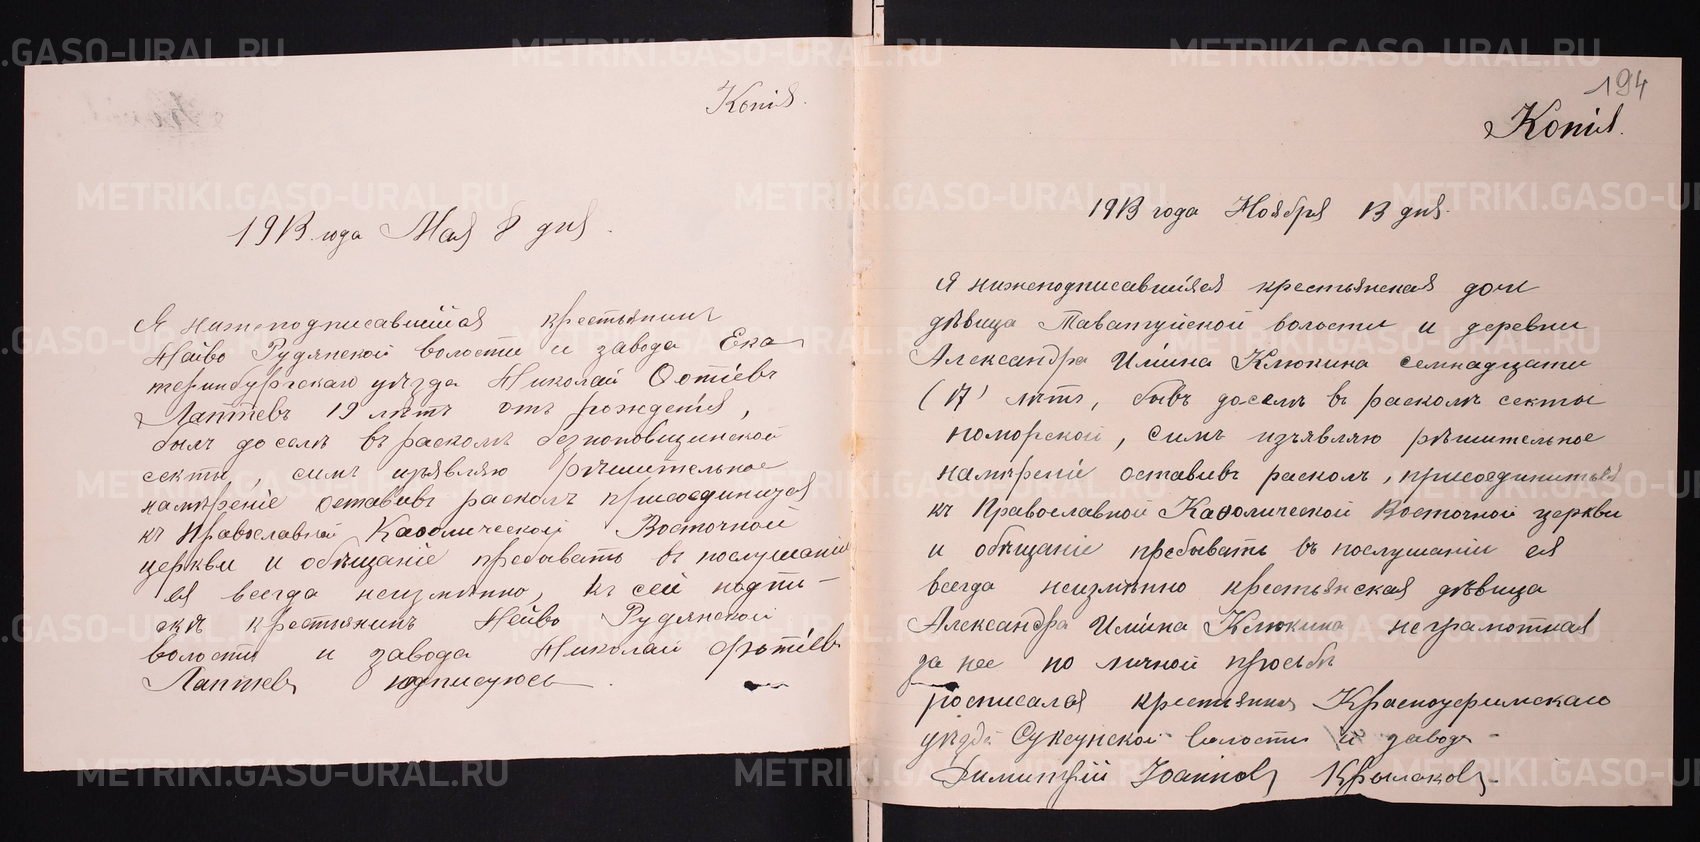 Копія.
1913 года Мая 8 дня.
Я нижеподписавшійся крестьянинъ
Нейво Рудянской волости и завода Ека
теринбургскаго уѣзда Николай Фотіевъ
Лаптевъ 19 лѣтъ отъ рожденія,
былъ доселѣ въ расколѣ безпоповщинской
секты, симъ изъявляю рѣшительное
намѣреніе оставивъ расколъ присоединится
къ Православной Каѳолической Восточной
церкви и обѣщаніе пребывать въ послушаніи
ея всегда неизмѣнно, къ сей подпи-
скѣ крестьянинъ Нейво Рудянской
волости и завода Николай Фотіевъ
Лаптевъ подписуюсь.
194
Копія.
1913 года Ноября 13 дня.
Я нижеподписавшіяся крестьянская дочь
дѣвица Таватуйской волости и деревни
Александра Ильина Клюкина семнадцати
(17) лѣтъ, бывъ доселѣ въ расколѣ секты
поморской, симъ изъявляю рѣшительное
намѣреніе оставивъ расколъ, присоединиться
къ Православной Каѳолической Восточной церкви
и обѣщаніе пребывать въ послушаніи ея
всегда неизмѣнно крестьянская дѣвица
Александра Ильина Клюкина неграмотная
за нее по личной просьбѣ
росписался крестьянинъ Красноуфимскаго
уѣзда Суксунской волости и завода
Димитрій Іоанновъ Крылаковъ.
METRIKI.GASO-URAL.RU